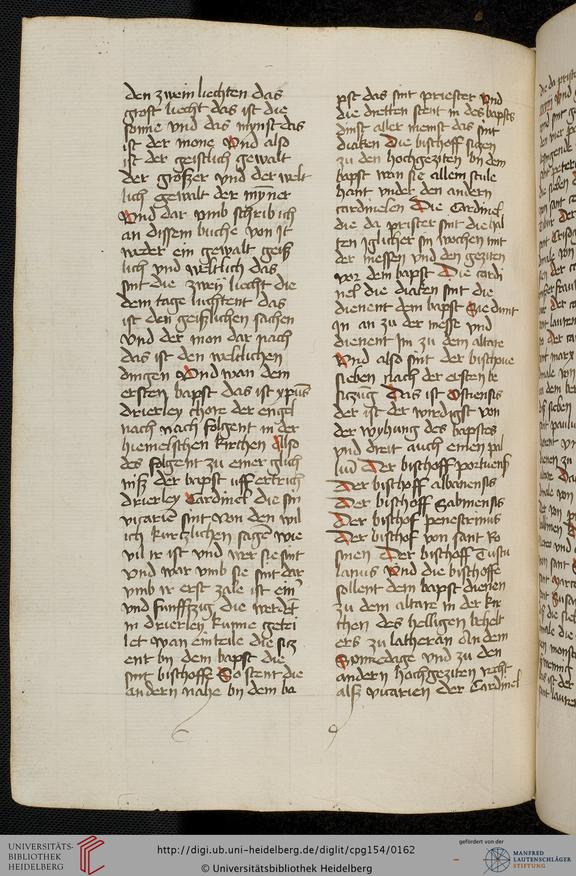 den zwein liechten das
grost liecht das ist die
sonne vnd das mynst das
ist der mone Vnd also
ist der geistlich gewalt
der grosszer vnd der welt
lich gewalt der myner
Vnd dar vmb schrib ich
an dissem buche von it
weder ein gewalt geist
lich vnd weltlich das
sint die zwey liecht die
dem tage luchtent das
ist den geistlichen sachen
vnd der mon dar nach
das ist den weltlichen
dingen Vnd wan dem
ersten bapst das ist xpus
drierley chore der engel
nach nach folgent in der
hiemelschen kirchen Also
des folgent zu einer glich
nisz der bapst uff ertrich
drierley Cardinel die sin
vicarien sint von den wil
ich kurtzlichen sagen wie
vil ir ist vnd wer sie sint
vnd war vmb sie sint dar
vmb ir erst zale ist ein
vnd funfftzig die werdet
in drierley kunne getei
let wan ein teile die sitz
ent bij dem bapst die
sint bischoffe So stent die
andern nahe bij dem ba
pst das sint priester vnd
die dretten stent in des bapsts
dinst aller meinst das sint
diaken Die bischoffe sitzen
zu den hochgeziten bij dem
bapst wan sie allein stule
hant vnder den andern
cardinelen Die Cardinel
die da prister sint die hal
ten iglicher sin wochen mit
der messen vnd den geziten
vor dem bapst Die cardi
nel die diaken sint die
dienent dem bapst Sie dunt
In an zu der messe vnd
dienent Im zu dem altare
Vnd also sint der bischove
sieben nach der ersten be
sitzug Das ist Ostiensis
der ist der wirdigst von
der wyhung des bapstes
vnd dreit auch einen pal
lium Der bischoff portuens
Der bischoff albanensis
Der bischoff Sabinensis
Der bischof penestrinus
Der bischof von sant Ro
finen Der bischoff Tuscu
lanus Vnd die bischoffe
sollent dem bapst dienen
zu dem altare in der kir
chen des helligen behelt
ers zu latheran an dem
Sonnedage vnd zu den
andern hochgeziten recht
alsz vicarien der Cardinel
UNIVERSITÄTS-
BIBLIOTHEK
HEIDELBERG
http://digi.ub.uni-heidelberg.de/diglit/cpg154/0162
© Universitätsbibliothek Heidelberg
gefördert von der
MANFRED
LAUTENSCHLÄGER
STIFTUNG